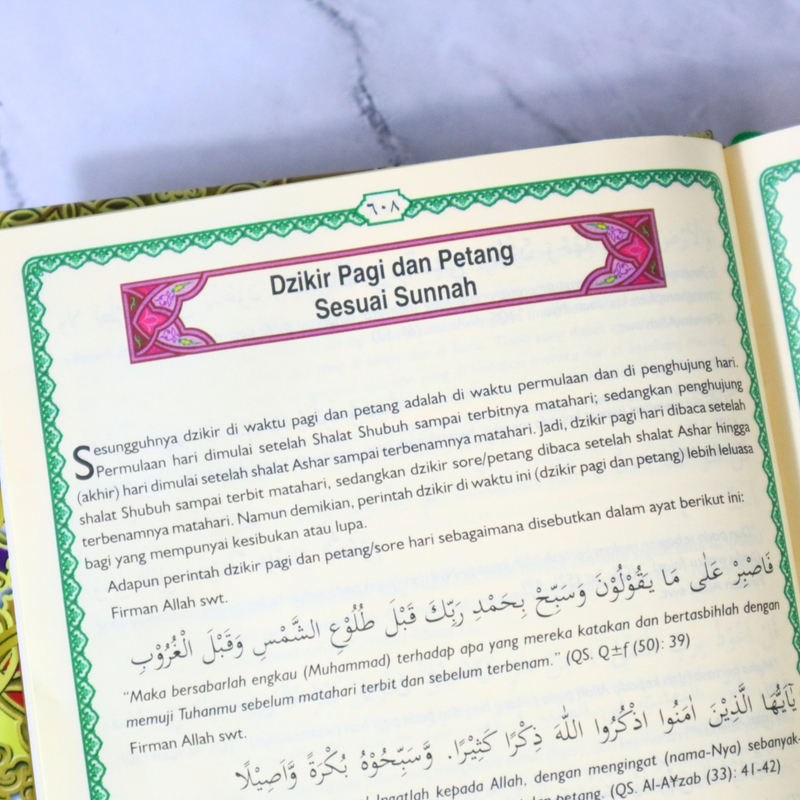 ٦٠٨
Dzikir Pagi dan Petang
Sesuai Sunnah
Sesungguhnya dzikir di waktu pagi dan petang adalah di waktu permulaan dan di penghujung hari.
Permulaan hari dimulai setelah Shalat Shubuh sampai terbitnya matahari; sedangkan penghujung
(akhir) hari dimulai setelah shalat Ashar sampai terbenamnya matahari. Jadi, dzikir pagi hari dibaca setelah
shalat Shubuh sampai terbit matahari, sedangkan dzikir sore/petang dibaca setelah shalat Ashar hingga
terbenamnya matahari. Namun demikian, perintah dzikir di waktu ini (dzikir pagi dan petang) lebih leluasa
bagi yang mempunyai kesibukan atau lupa.
Adapun perintah dzikir pagi dan petang/sore hari sebagaimana disebutkan dalam ayat berikut ini:
Firman Allah swt.
فَاصْبِرْ عَلٰى مَا يَقُوْلُوْنَ وَسَبِّحْ بِحَمْدِ رَبِّكَ قَبْلَ طُلُوْعِ الشَّمْسِ وَقَبْلَ الْغُرُوْبِ
"Maka bersabarlah engkau (Muhammad) terhadap apa yang mereka katakan dan bertasbihlah dengan
memuji Tuhanmu sebelum matahari terbit dan sebelum terbenam." (QS. Q±f (50): 39)
Firman Allah swt.
يٰٓاَيُّهَا الَّذِيْنَ اٰمَنُوا اذْكُرُوا اللّٰهَ ذِكْرًا كَثِيْرًا. وَّسَبِّحُوْهُ بُكْرَةً وَّاَصِيْلًا
Ingatlah kepada Allah, dengan mengingat (nama-Nya) sebanyak-
dan petang. (QS. Al-A¥zab (33): 41-42)